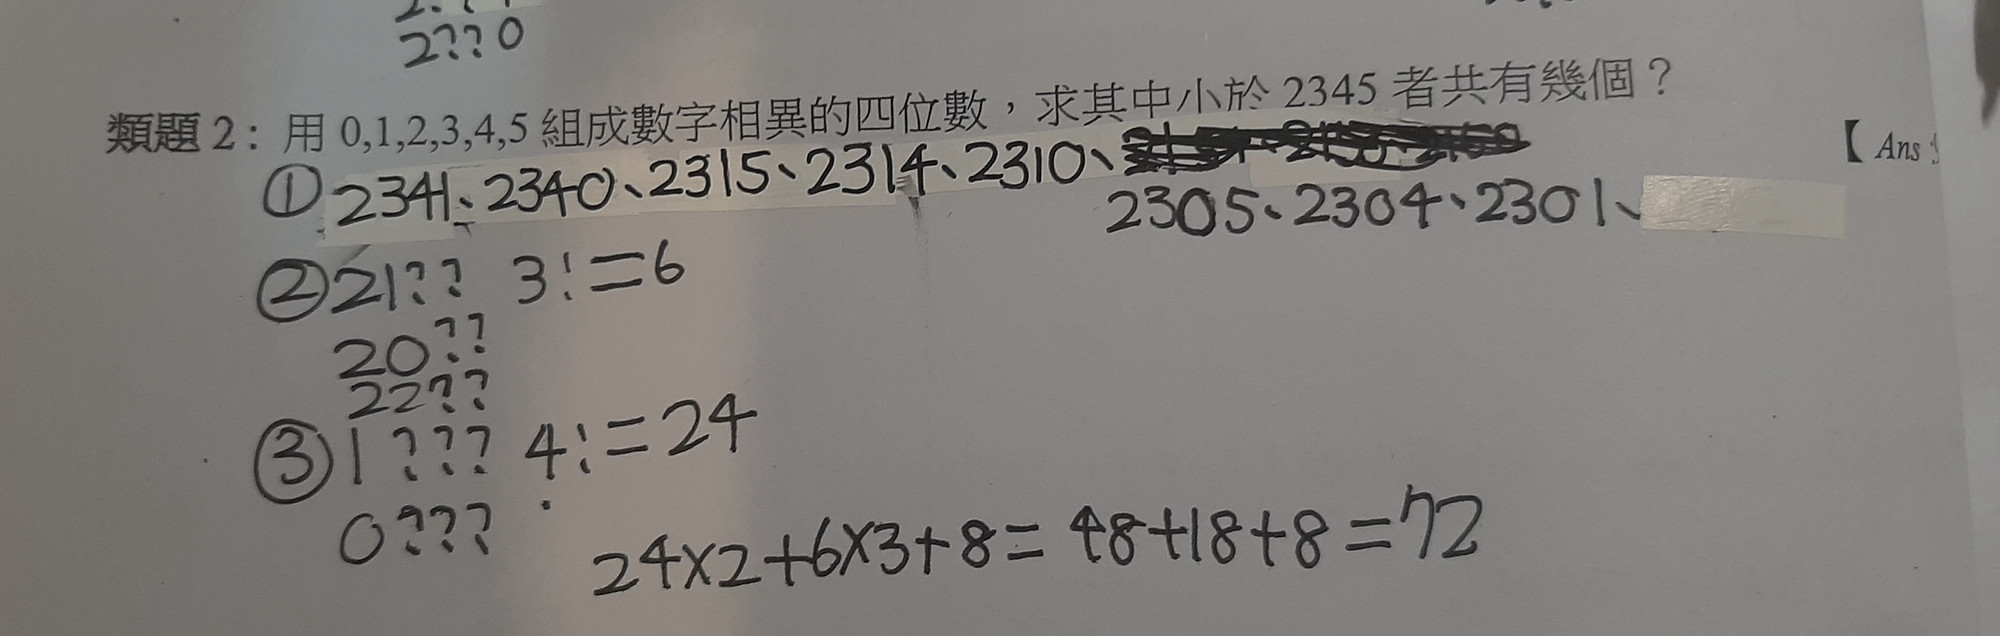 2??0
類題 2：用 0,1,2,3,4,5 組成數字相異的四位數，求其中小於 2345 者共有幾個？
【Ans
① 2341、2340、2315、2314、2310、
2305、2304、2301、
② 21?? 3!=6
20??
22??
③ 1??? 4!=24
0???
24×2+6×3+8= 48+18+8=72